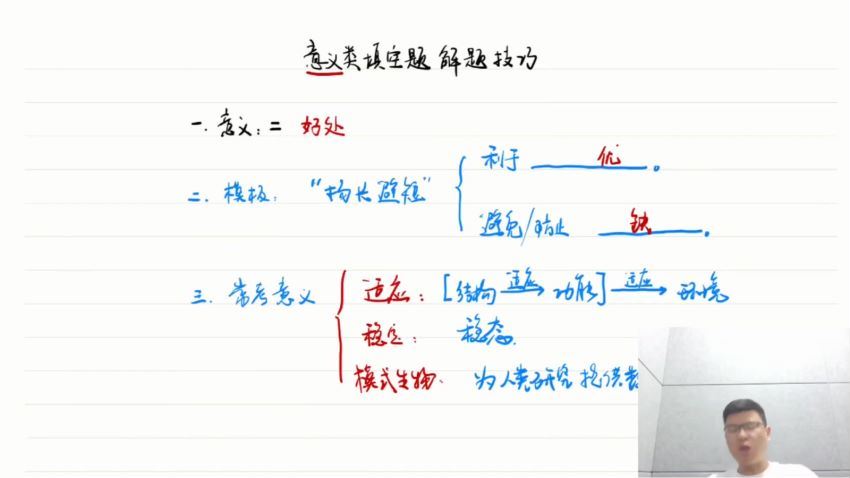 意义类填空题 解题技巧
一. 意义: = 好处
二. 模板: "扬长避短" { 利于 优 。
避免/防止 缺 。
三. 常考意义 { 适应: [结构 适应→ 功能] 适应→ 环境
稳定: 稳态.
模式生物. 为人类研究提供